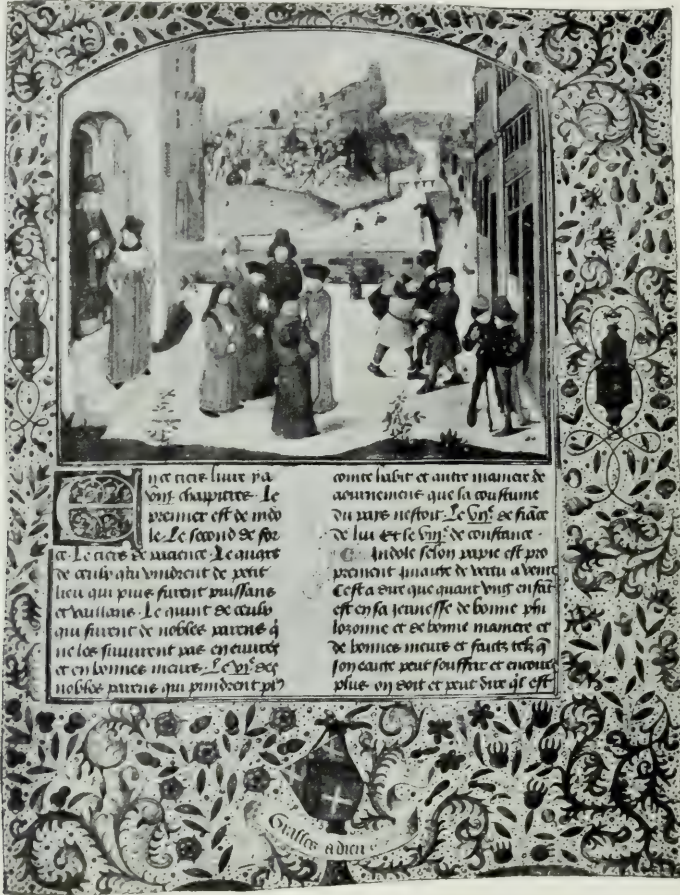 En ce tiers liure y a
viij chapitres. Le
premier est de indo
le. Le second de for
ce. Le tiers de pacience. Le quart
de ceulx qui vindrent de petit
lieu qui puis furent puissans
et vaillans. Le quint de ceulx
qui furent de nobles parens q̃
ne les suiuirent pas en euures
et en bonnes meurs. Le vjᵉ des
nobles parens qui prindrent
cointe habit et autre maniere de
aournemens que la coustume
du pays nestoit. Le vijᵉ de fiāce
de lui Et le viijᵉ de constance.
Indole selon papie est pro
prement lymaige de vertu a venir
Cest a dire que quant vng enfāt
est en sa jeunesse de bonne phi
lozomie et de bonne maniere et
de bonnes meurs et faitz telz q̃
son eaige peut souffrir et encoures
plus on doit et peut dire q̃l est
Graces a dieu